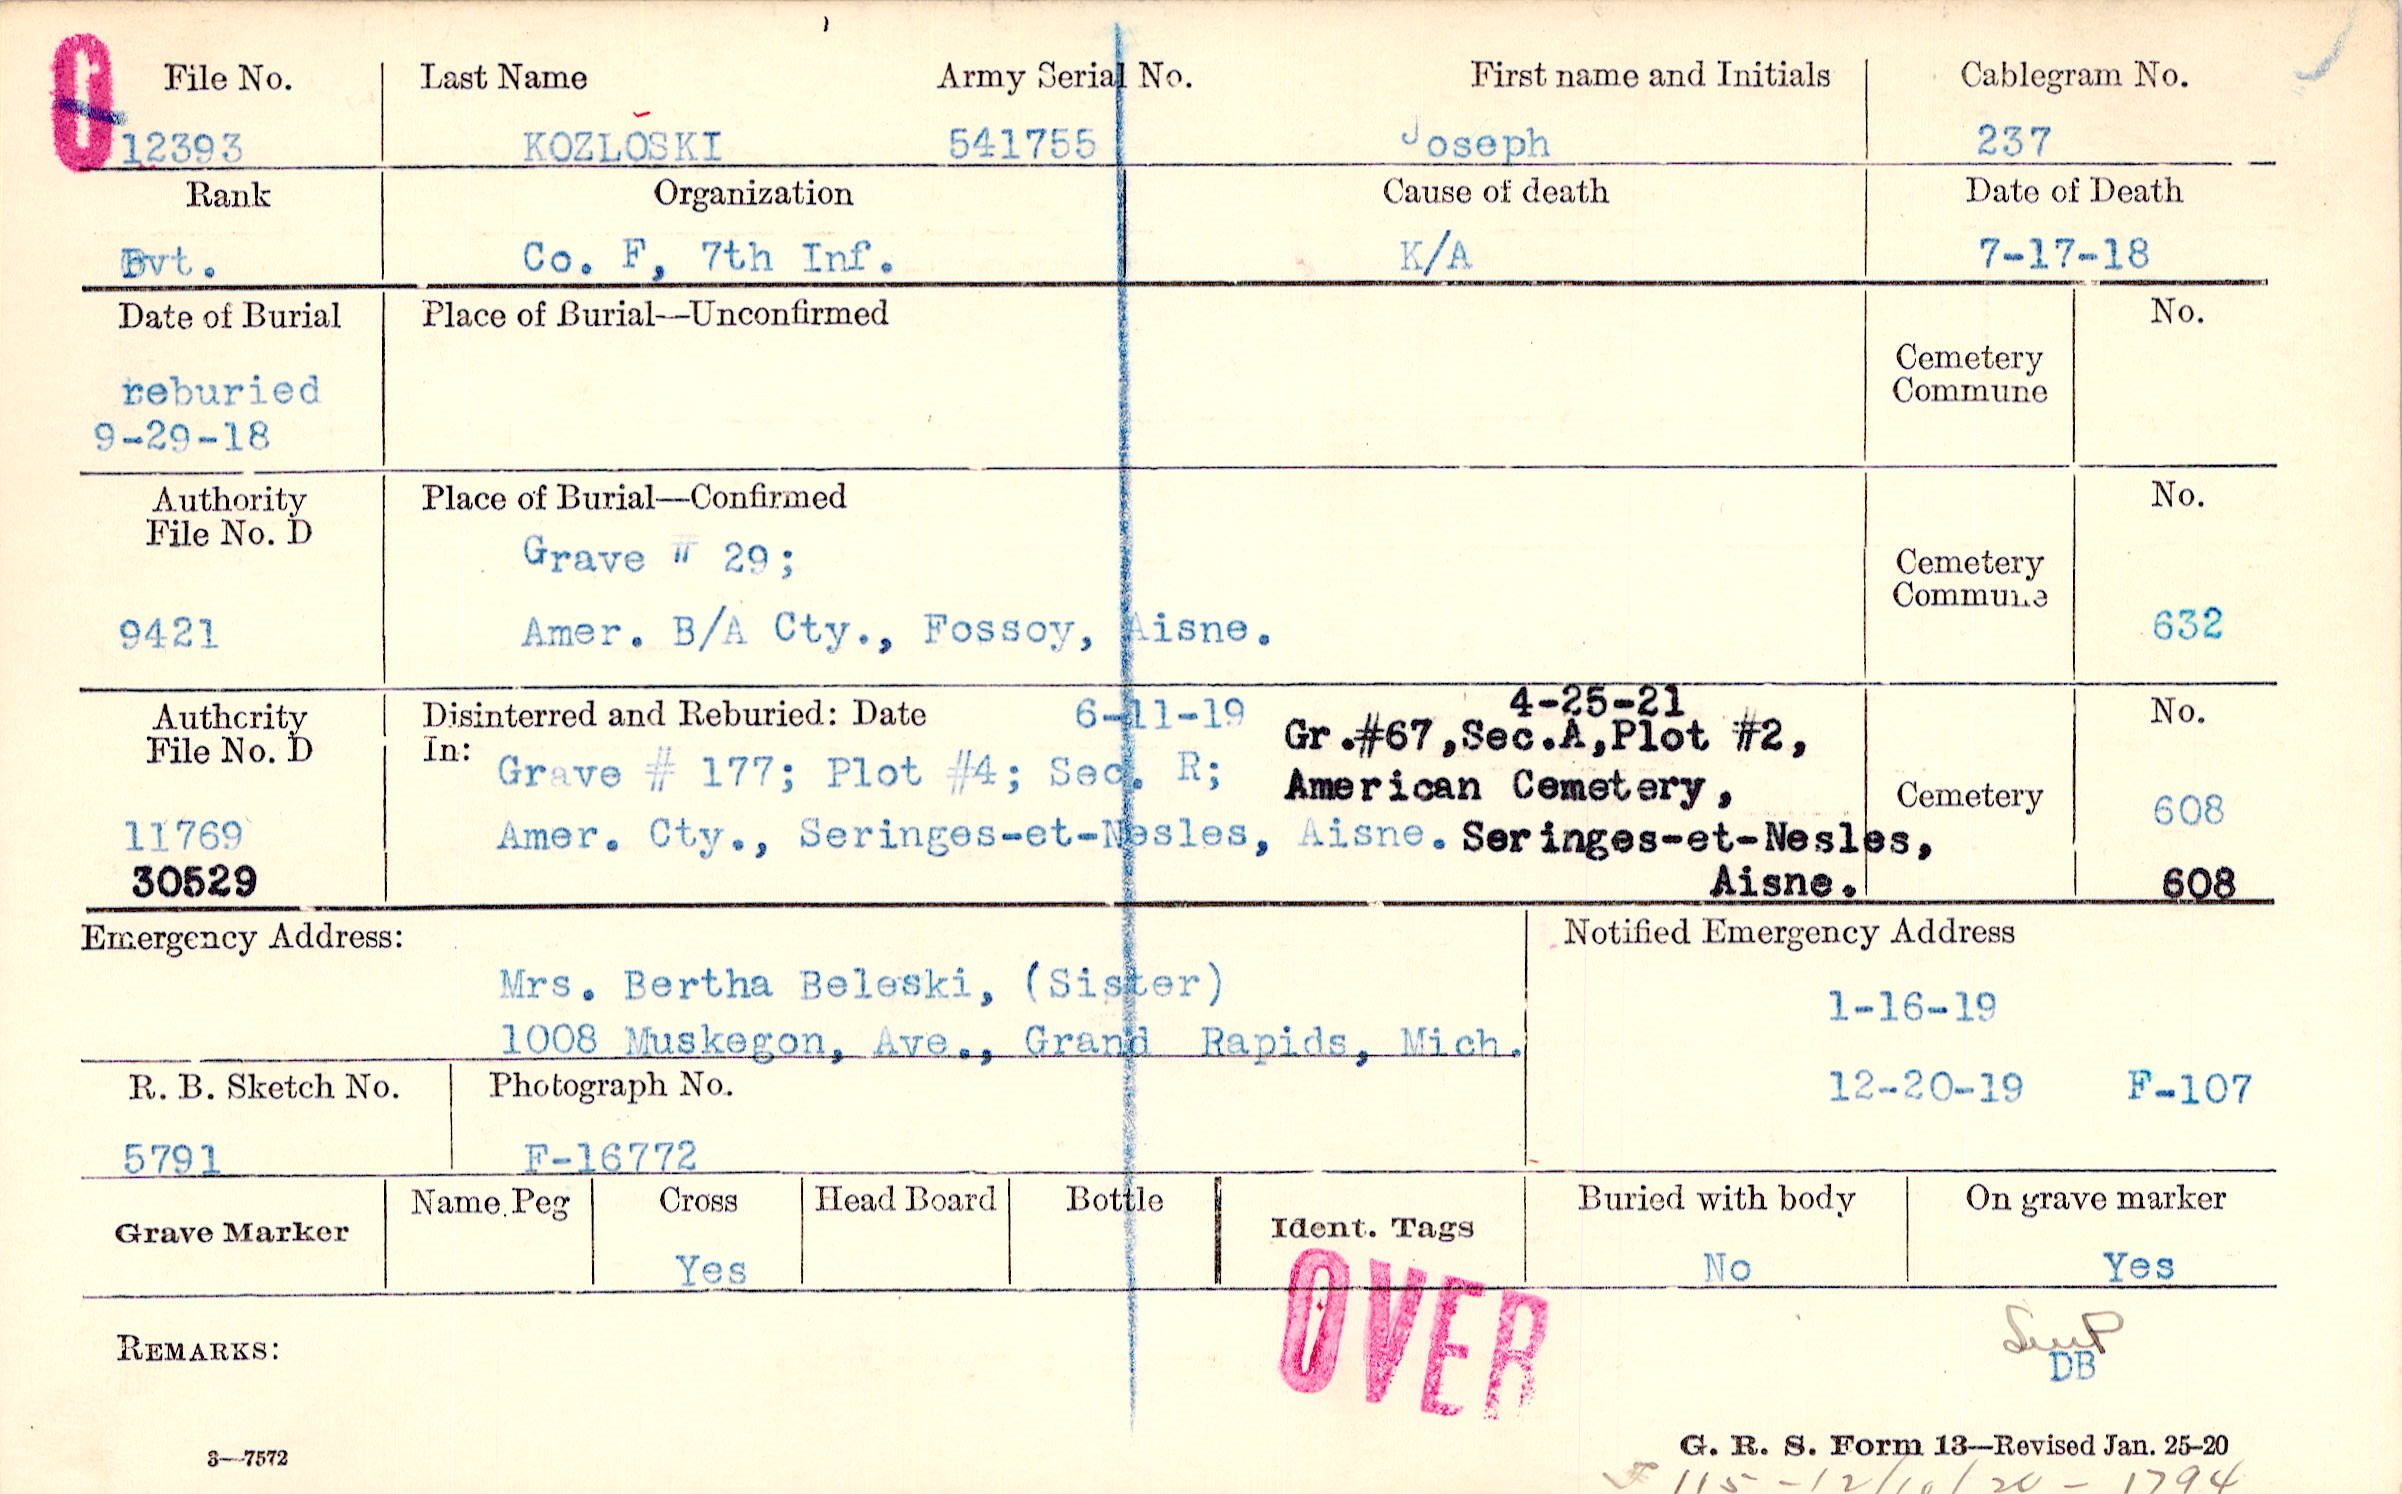 O
File No. Last Name Army Serial No. First name and Initials Cablegram No.
12393 KOZLOSKI 541755 Joseph 237
Rank Organization Cause of death Date of Death
Pvt. Co. F, 7th Inf. K/A 7-17-18
Date of Burial Place of Burial—Unconfirmed No.
Cemetery
Commune
reburied
9-29-18
Authority Place of Burial—Confirmed No.
File No. D
Grave # 29;
Cemetery
Commune
9421 Amer. B/A Cty., Fossoy, Aisne. 632
Authority Disinterred and Reburied: Date 6-11-19 4-25-21 No.
File No. D In: Gr.#67,Sec.A,Plot #2,
Grave # 177; Plot #4; Sec. R; American Cemetery, Cemetery
11769 Amer. Cty., Seringes-et-Nesles, Aisne. Seringes-et-Nesles, 608
30529 Aisne. 608
Emergency Address: Notified Emergency Address
Mrs. Bertha Beleski, (Sister) 1-16-19
1008 Muskegon, Ave., Grand Rapids, Mich.
R. B. Sketch No. Photograph No. 12-20-19 F-107
5791 F-16772
Grave Marker Name Peg Cross Head Board Bottle Ident. Tags Buried with body On grave marker
Yes No Yes
OVER
REMARKS:
DB
3—7572 G. R. S. Form 13—Revised Jan. 25-20
115-12/10/20-1794